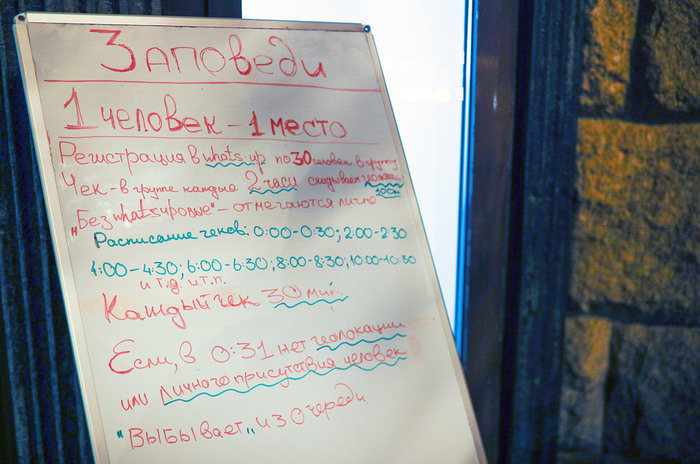 Заповеди
1 человек - 1 место
Регистрация в whats-up по 30 человек в группу
Чек - в группе каждые 2 часа скидывает геолокац.
100м
"Без whatsupовые" - отмечаются лично
Расписание чеков: 0:00-0:30; 2:00-2:30
4:00-4:30; 6:00-6:30; 8:00-8:30; 10:00-10:30
и т.д. и т.п.
Каждый чек 30 мин.
Если, в 0:31 нет геолокации
или личного присутствия человек
"Выбывает" из очереди